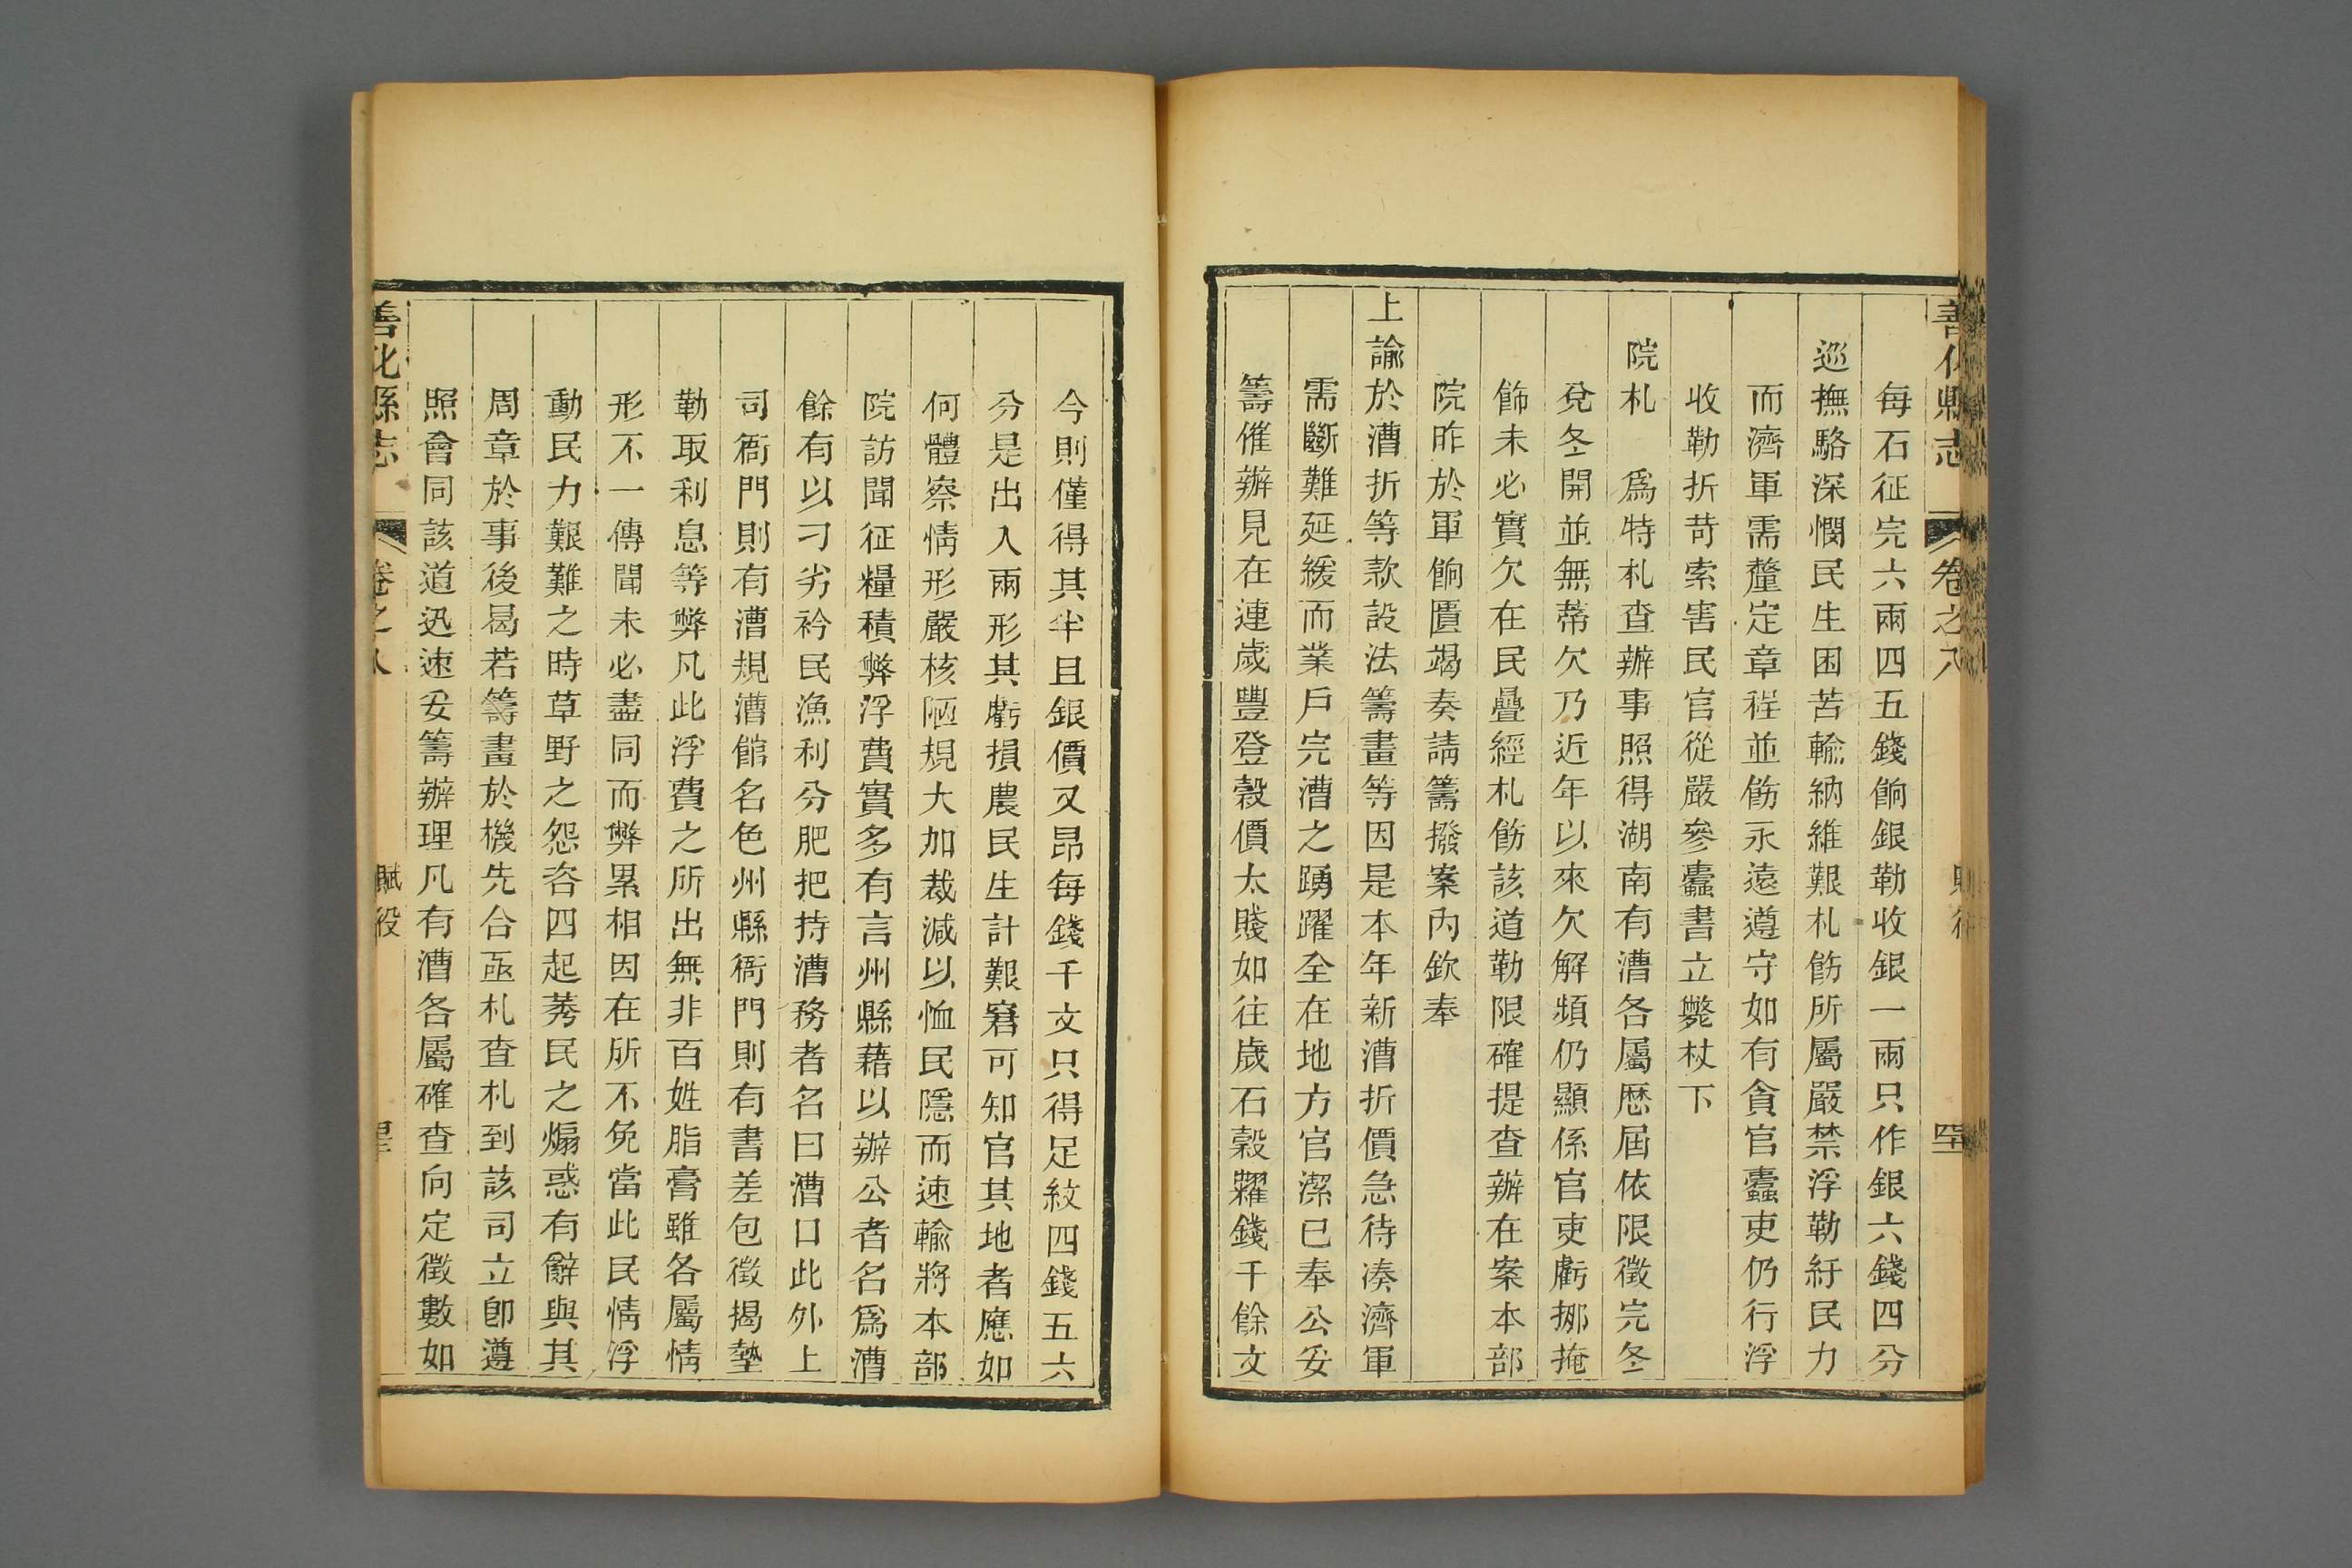 善化縣志 卷之八
每石征完六兩四五錢餉銀勒收銀一兩只作銀六錢四分
巡撫駱深憫民生困苦輸納維艱札飭所屬嚴禁浮勒紓民力
而濟軍需釐定章程並飭永遠遵守如有貪官蠹吏仍行浮
收勒折苛索害民官從嚴參蠹書立斃杖下
院札 爲特札查辦事照得湖南有漕各屬歴屆依限徵完冬
兌冬開並無蒂欠乃近年以來欠解頻仍顯係官吏虧挪掩
飾未必實欠在民疊經札飭該道勒限確提查辦在案本部
院昨於軍餉匱竭奏請籌撥案內欽奉
上諭於漕折等款設法籌畫等因是本年新漕折價急待湊濟軍
需斷難延緩而業戶完漕之踴躍全在地方官潔已奉公妥
籌催辦見在連歲豐登穀價太賤如往歲石穀糶錢千餘文
今則僅得其半且銀價又昂每錢千文只得足紋四錢五六
分是出入兩形其虧損農民生計艱窘可知官其地者應如
何體察情形嚴核陋規大加裁減以恤民隱而速輸將本部
院訪聞征糧積弊浮費實多有言州縣藉以辦公者名爲漕
餘有以刁劣衿民漁利分肥把持漕務者名曰漕口此外上
司衙門則有漕規漕館名色州縣衙門則有書差包徵揭墊
勒取利息等弊凡此浮費之所出無非百姓脂膏雖各屬情
形不一傳聞未必盡同而弊累相因在所不免當此民情浮
動民力艱難之時草野之怨咨四起莠民之煽惑有辭與其
周章於事後曷若籌畫於機先合亟札查札到該司立卽遵
照會同該道迅速妥籌辦理凡有漕各屬確查向定徵數如
善化縣志 卷之八 賦役